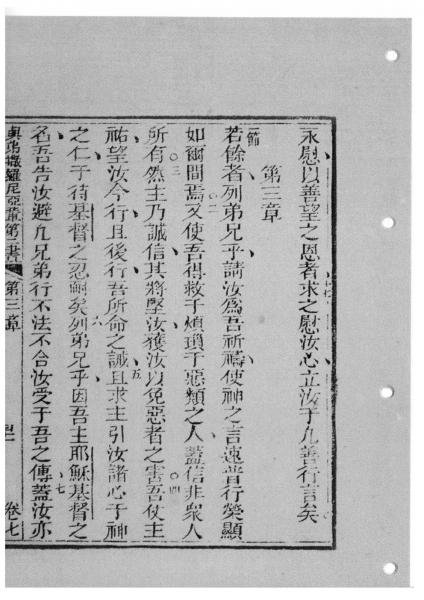 永慰以善望之恩者求之慰汝心立汝于凡善行言矣
第三章
一節
若餘者列弟兄乎請汝為吾祈禱使神之言速普行熒顯
如爾間焉又使吾得救于煩瑣于惡類之人蓋信非眾人
所有然主乃誠信其將堅汝獲汝以免惡者之害吾仗主
祐望汝今行且後行吾所命之誡且求主引汝諸心于神
之仁于待基督之忍耐矣列弟兄乎因吾主耶穌基督之
名吾告汝避凡兄弟行不法不合汝受于吾之傳蓋汝亦
第三章
卷七